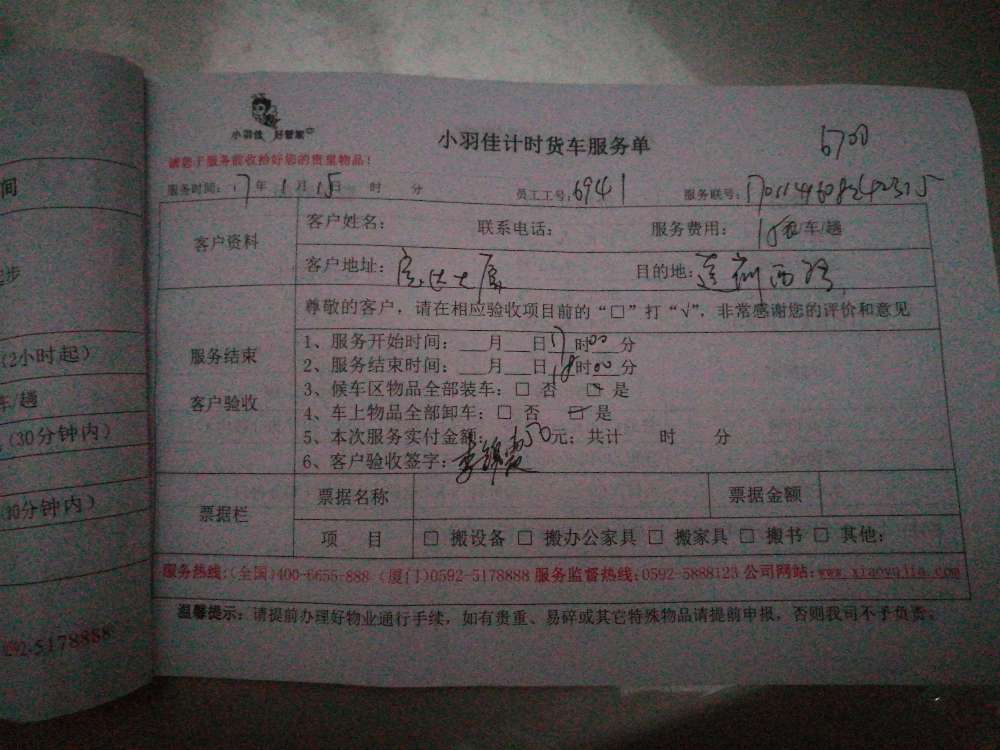 小羽佳 好管家
小羽佳计时货车服务单
6700
请您于服务前收拾好您的贵重物品！
服务时间：17年1月15日 时 分 员工工号：6941 服务联号：
客户资料
客户姓名： 联系电话： 服务费用： /车/趟
客户地址： 目的地：
尊敬的客户，请在相应验收项目前的“□”打“√”，非常感谢您的评价和意见
服务结束
客户验收
1、服务开始时间：___月___日17时00分
2、服务结束时间：___月___日18时00分
3、候车区物品全部装车：□ 否 □ 是
4、车上物品全部卸车：□ 否 □ 是
5、本次服务实付金额：150元；共计 时 分
6、客户验收签字：
票据栏
票据名称 票据金额
项 目 □ 搬设备 □ 搬办公家具 □ 搬家具 □ 搬书 □ 其他：
服务热线：(全国)400-6655-888（厦门)0592-5178888 服务监督热线：0592-5888123 公司网站：www.xiaoyujia.com
温馨提示：请提前办理好物业通行手续，如有贵重、易碎或其它特殊物品请提前申报，否则我司不予负责。
间
步
(2小时起)
车/趟
(30分钟内)
(30分钟内)
0592-5178888